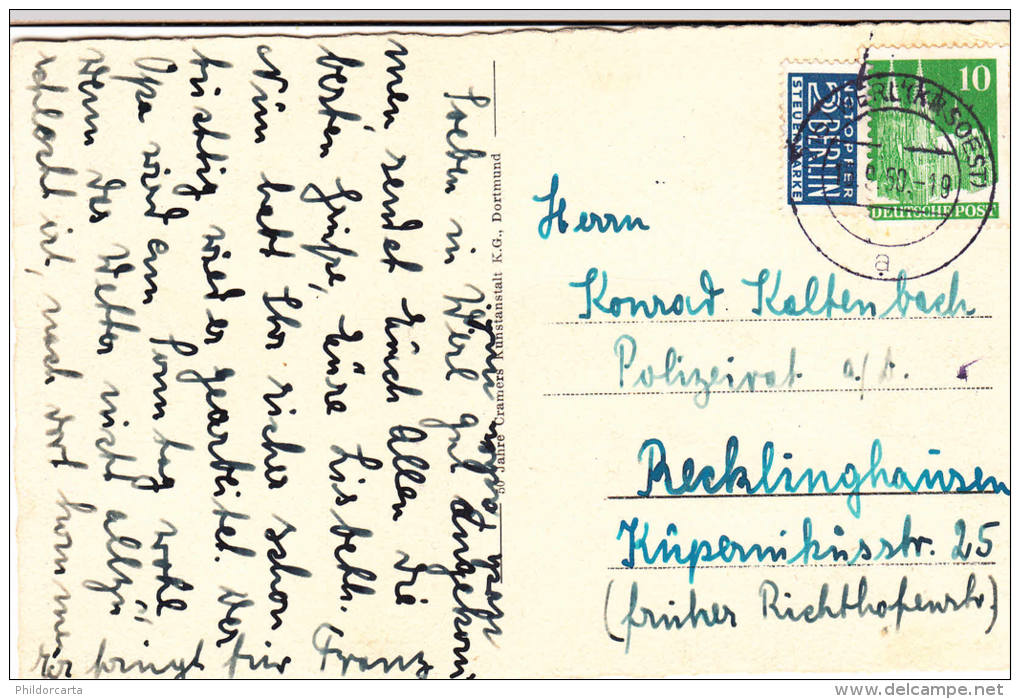 Soeben in Werl gut angekom
men sendet Euch Allen die
besten Grüße, Eure Lisbeth.
Nun habt Ihr sicher schon
tüchtig wieder gearbeitet. Der
Opa wird am Sonntag wohl
wenn das Wetter nicht allzu
schlecht ist, nach dort kommen.
für Franz
50 Jahre Cramers Kunstanstalt K.G., Dortmund
NOTOPFER
2 BERLIN
STEUERMARKE
10
DEUTSCHE POST
WERL (KR SOEST)
9.50.-19
a
Herrn
Konrad Kaltenbach
Polizeirat a/D.
Recklinghausen
Küpernikusstr. 25
(früher Richthofenstr.)
Phildorcarta
www.delcampe.net